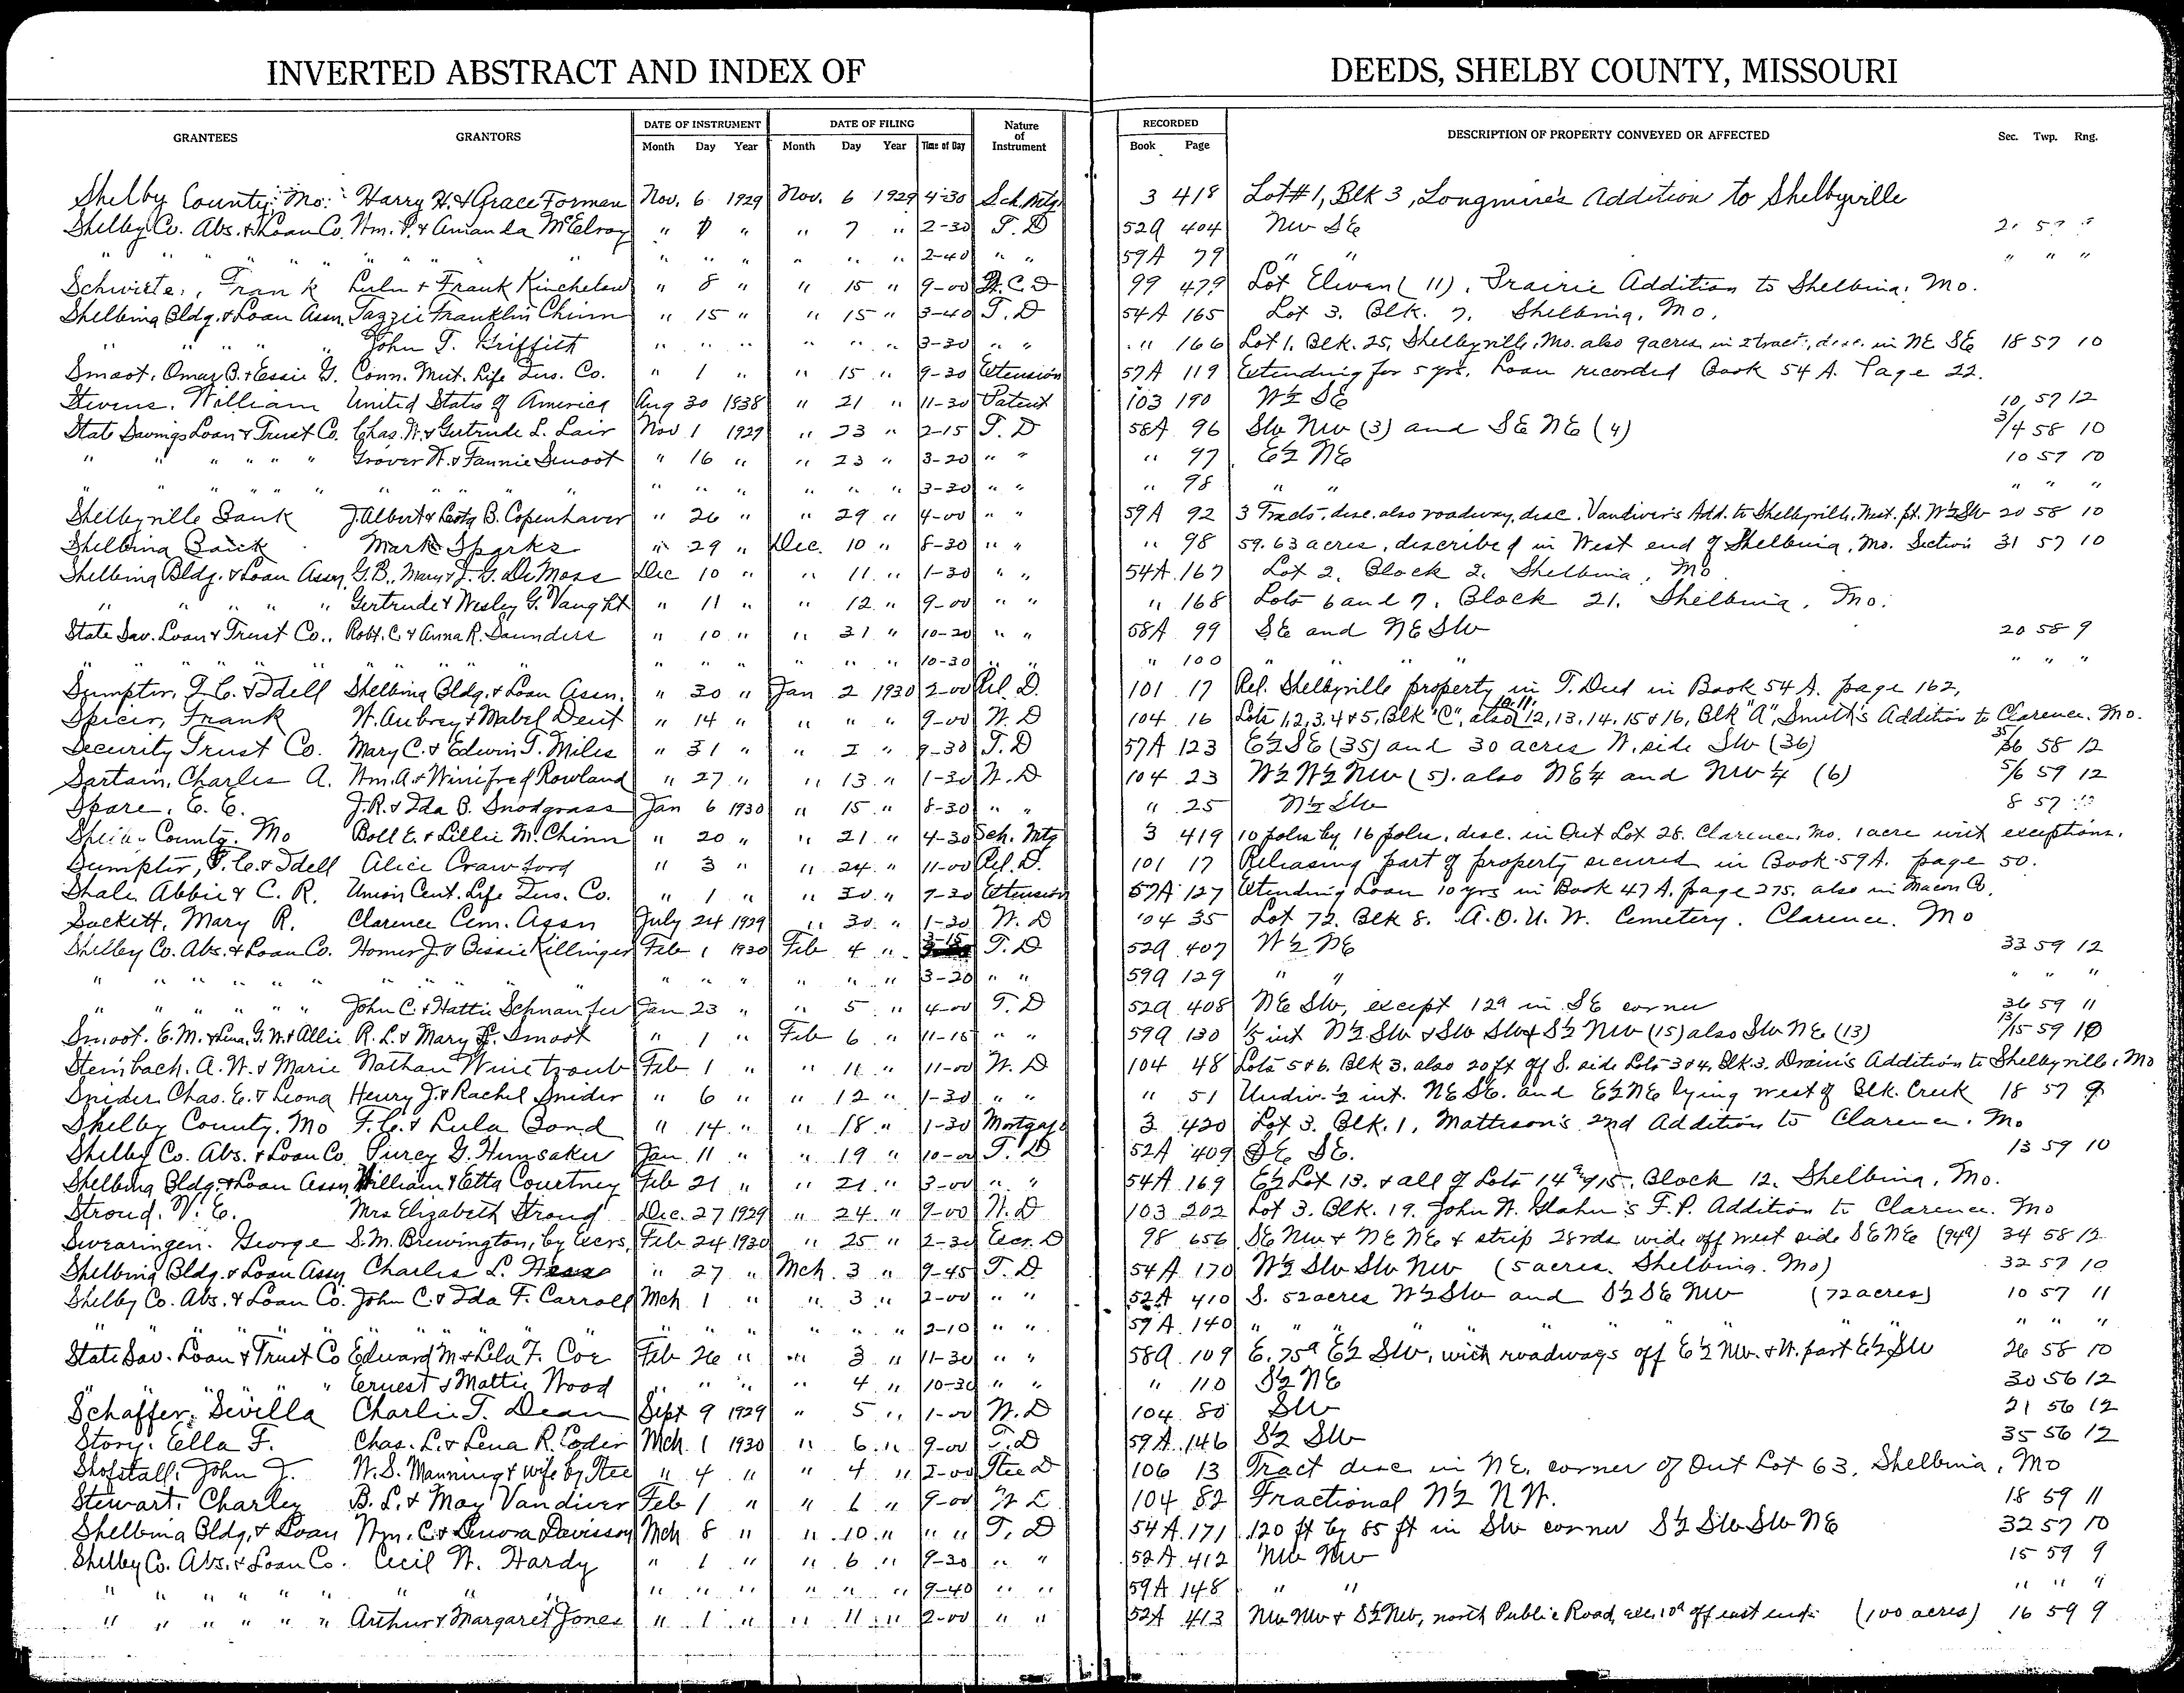 INVERTED ABSTRACT AND INDEX OF
DEEDS, SHELBY COUNTY, MISSOURI
GRANTEES GRANTORS DATE OF INSTRUMENT Month Day Year DATE OF FILING Month Day Year Time of Day Nature of Instrument RECORDED Book Page DESCRIPTION OF PROPERTY CONVEYED OR AFFECTED Sec. Twp. Rng.
Shelby County, Mo. Harry H. & Grace Forman Nov. 6 1929 Nov. 6 1929 4-30 Sch. Mtg. 3 418 Lot #1, Blk 3, Longmire's Addition to Shelbyville
Shelby Co. Abs. & Loan Co. Wm. P. & Amanda McElroy " 7 " " 7 " 2-30 T. D 52a 404 NW SE
" " " " " " " " " " " " " " " " " 2-40 " " 59A 79 " " " " "
Frank Lulu & Frank " 8 " " 15 " 9-00 99 479 Lot Eleven (11), Prairie Addition to Shelbina, Mo.
Shelbina Bldg. & Loan Assn. Tazzie Franklin Chinn " 15 " " 15 " 3-40 T. D 54A 165 Lot 3. Blk. 7. Shelbina, Mo.
" " " " John T. Griffith " " " " " " 3-30 " " " 166 Lot 1. Blk. 25, Shelbyville, Mo. also 9 acres in 2 tracts, desc. in NE SE 18 57 10
Smoot, Omar B. & Essie G. Conn. Mut. Life Ins. Co. " 1 " " 15 " 9-30 Extension 57A 119 Extending for 5 yrs. Loan recorded Book 54 A. Page 22.
Stevens, William United States of America Aug 30 1838 " 21 " 11-30 Patent 103 190 W½ SE 10 57 12
State Savings Loan & Trust Co. Chas. W. & Gertrude L. Lair Nov 1 1929 " 23 " 2-15 T. D 58A 96 SW NW (3) and SE NE (4) 3/4 58 10
" " " " " " Grover W. & Fannie Smoot " 16 " " 23 " 3-20 " " " 97 E½ NE 10 57 10
" " " " " " " " " " " " " " " " 3-30 " " " 98 " " " " "
Shelbyville Bank J. Albert & Leota B. Copenhaver " 26 " " 29 " 4-00 " " 59A 92 3 Tracts, desc. also roadway, desc. Vandiver's Add. to Shelbyville, W½ SW 20 58 10
Shelbina Bank Mark Sparks " 29 " Dec. 10 " 8-30 " " " 98 59.63 acres, described in West end of Shelbina, Mo. Section 31 57 10
Shelbina Bldg. & Loan Assn. G.B., Mary & J. G. DeMoss Dec 10 " " 11 " 1-30 " " 54A 167 Lot 2. Block 2. Shelbina, Mo
" " " " " Gertrude & Wesley G. Vaught " 11 " " 12 " 9-00 " " " 168 Lots 6 and 7, Block 21. Shelbina, Mo.
State Sav. Loan & Trust Co. Robt. C. & Anna R. Saunders " 10 " " 31 " 10-20 " " 58A 99 SE and NE SW 20 58 9
" " " " " " " " " " " " " " " " 10-30 " " " 100 " " " " " " "
Sumpter, F. C. & Idell Shelbina Bldg. & Loan Assn. " 30 " Jan 2 1930 2-00 Rel. D. 101 17 Rel. Shelbyville property in T. Deed in Book 54 A. page 162,
Spicer, Frank W. Aubrey & Mabel Dent " 14 " " " " 9-00 W. D 104 16 Lots 1, 2, 3, 4 & 5, Blk "C", also 10, 11, 12, 13, 14, 15 & 16, Blk "A", Smith's Addition to Clarence. Mo.
Security Trust Co. Mary C. & Edwin T. Miles " 31 " " 2 " 9-30 T. D 57A 123 E½ SE (35) and 30 acres W. side SW (36) 35/36 58 12
Sartain, Charles A. Wm. A. & Winifred Rowland " 27 " " 13 " 1-30 W. D 104 23 W½ W½ NW (5). also NE¼ and NW¼ (6) 5/6 59 12
Spare, E. E. J. R. & Ida B. Snodgrass Jan 6 1930 " 15 " 8-30 " " " 25 N½ SW 8 57
County, Mo Boll E. & Lillie M. Chinn " 20 " " 21 " 4-30 Sch. Mtg 3 419 10 poles by 16 poles, desc. in Out Lot 28. Clarence, Mo. 1 acre with exceptions.
Sumpter, F. C. & Idell Alice Crawford " 3 " " 24 " 11-00 Rel. D. 101 17 Releasing part of property secured in Book 59A. page 50.
Shale, Abbie & C. R. Union Cent. Life Ins. Co. " 1 " " 30 " 7-30 Extension 57A 127 Extending Loan 10 yrs in Book 47 A. page 275, also in Macon Co.
Sackett, Mary R. Clarence Cem. Assn July 24 1929 " 30 " 1-30 W. D 104 35 Lot 72. Blk 8. A.O.U.W. Cemetery. Clarence. Mo
Shelby Co. Abs. & Loan Co. Homer J. & Bessie Killinger Feb 1 1930 Feb 4 " 3-15 T. D 52a 407 W½ NE 33 59 12
" " " " " " " " " " " " 3-20 " " 59a 129 " " " " "
" " " " " " John C. & Hattie Jan 23 " " 5 " 4-00 T. D 52a 408 NE SW, except 12a in SE corner 36 59 11
Smoot. E. M. & Lena, G. W. & Allie R. L. & Mary F. Smoot " 1 " Feb 6 " 11-15 " " 59a 130 ⅕ int N½ SW & SW SW & S½ NW (15) also SW NE (13) 13/15 59 10
Steinbach. A. W. & Marie Nathan Winetroub Feb. 1 " " 11 " 11-00 W. D 104 48 Lots 5 & 6. Blk 3. also 20 ft off S. side Lots 3 & 4, Blk. 3. Drain's Addition to Shelbyville, Mo
Snider, Chas. E. & Leona Henry J. & Rachel Snider " 6 " " 12 " 1-30 " " " 51 Undiv. ½ int. NE SE. and E½ NE lying west of Blk. Creek 18 57 9
Shelby County, Mo F. C. & Lula Bond " 14 " " 18 " 1-30 Mortgage 3 420 Lot 3. Blk. 1, Mattison's 2nd Addition to Clarence. Mo
Shelby Co. Abs. & Loan Co. Purcy G. Hunsaker Jan. 11 " " 19 " 10-00 T. D 52A 409 SE SE. 13 59 10
Shelbina Bldg. & Loan Assn William & Etta Courtney Feb 21 " " 21 " 3-00 " " 54A 169 E½ Lot 13. & all of Lots 14 & 15, Block 12. Shelbina, Mo.
Stroud. V. E. Mrs Elizabeth Stroud Dec. 27 1929 " 24 " 9-00 W. D 103 202 Lot 3. Blk. 19. John W. Glahn's F. P. Addition to Clarence. Mo
Swearingen. George S. M. Brewington, by Execrs. Feb 24 1930 " 25 " 2-30 Excr. D 98 656 SE NW & NE NE & strip 28 rds wide off west side SE NE (94a) 34 58 12
Shelbina Bldg. & Loan Assn Charles L. " 27 " Mch. 3 " 9-45 T. D 54A 170 W½ SW SW NW (5 acres. Shelbina. Mo) 32 57 10
Shelby Co. Abs. & Loan Co. John C. & Ida F. Carroll Mch 1 " " 3 " 2-00 " " 52A 410 S. 52 acres W½ SW and S½ SE NW (72 acres) 10 57 11
" " " " " " " " " " " " " " " " 2-10 " " 59A 140 " " " " " " " " " "
State Sav. Loan & Trust Co Edward M. & Lela F. Coe Feb 26 " " 3 " 11-30 " " 58a 109 E. 75a E½ SW, with roadways off E½ NW. & W. part E½ SW 26 58 10
" " " " " Ernest & Mattie Wood " " " " 4 " 10-30 " " " 110 S½ NE 30 56 12
Schaffer, Sevilla Charlie T. Dean Sept 9 1929 " 5 " 1-00 W. D 104 80 SW 21 56 12
Story, Ella F. Chas. L. & Lena R. Coder Mch. 1 1930 " 6 " 9-00 T. D 59A 146 S½ SW 35 56 12
Shofstall, John J. W. S. Manning & wife by Stee " 4 " " 4 " 2-00 Stee D 106 13 Tract desc in NE. corner of Out Lot 63, Shelbina, Mo
Stewart, Charley B. L. & May Vandiver Feb 1 " " 6 " 9-00 W D 104 82 Fractional N½ N W. 18 59 11
Shelbina Bldg. & Loan Wm. C. & Lenora Davisson Mch 8 " " 10 " " " T. D 54A 171 120 ft by 85 ft in SW corner S½ SW SW NE 32 57 10
Shelby Co. Abs. & Loan Co. Cecil W. Hardy " 1 " " 6 " 9-30 " " 52A 412 NW NW 15 59 9
" " " " " " " " " " " " " " " 9-40 " " 59A 148 " " " " "
" " " " " " Arthur & Margaret Jones " 1 " " 11 " 2-00 " " 52A 413 NW NW & S½ NW, north Public Road, exc. 10a off east end (100 acres) 16 59 9